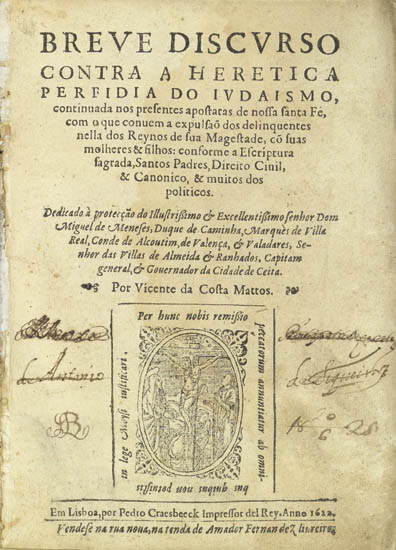 BREVE DISCVRSO
CONTRA A HERETICA
PERFIDIA DO IVDAISMO,
continuada nos presentes apostatas de nossa santa Fè,
com o que conuem a expulsaõ dos delinquentes
nella dos Reynos de sua Magestade, cõ suas
molheres & filhos: conforme a Escriptura
sagrada, Santos Padres, Direito Ciuil,
& Canonico, & muitos dos
politicos.
Dedicado à protecção do Illustrissimo & Excellentissimo senhor Dom
Miguel de Meneses, Duque de Caminha, Marquès de Villa
Real, Conde de Alcoutim, de Valença, & Valadares, Se-
nhor das Villas de Almeida & Ranhados, Capitam
general, & Gouernador da Cidade de Ceita.
Por Vicente da Costa Mattos.
Per hunc nobis remissio
peccatorum annuntiatur ab omni-
bus quibus non potuistis
in lege Moysi iustificari.
de Antonio
de Siqueira
1628
Em Lisboa, por Pedro Craesbeeck Impressor del Rey. Anno 1622.
Vendese na rua noua, na tenda de Amador Fernandez liureiro.